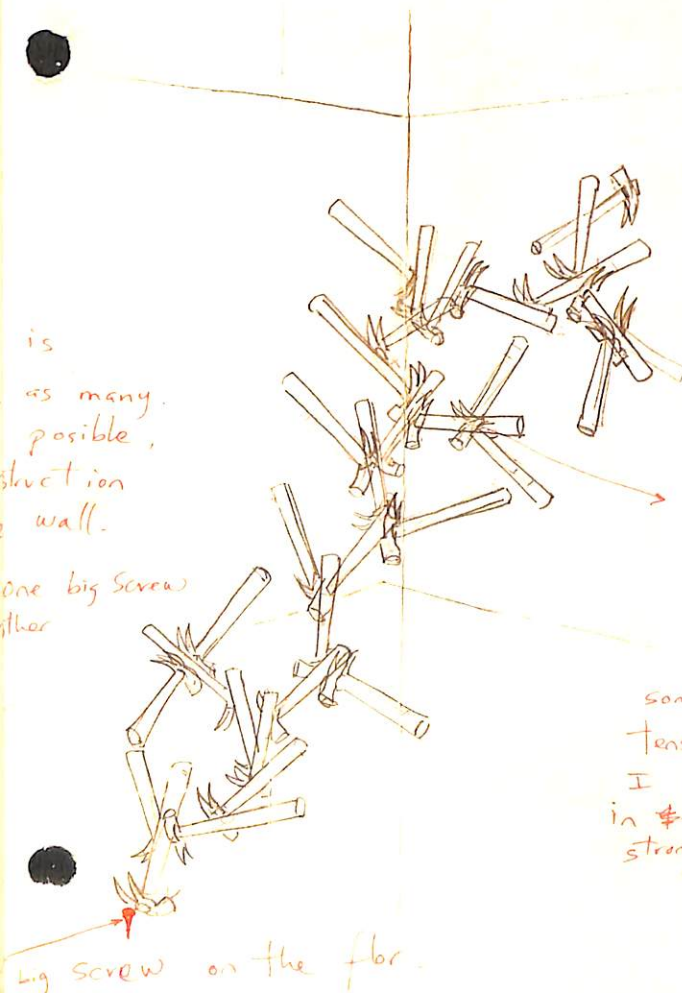 is
as many.
posible,
struction
wall.
one big screw
ther
son
ten
I
in
stron
big screw on the flor.